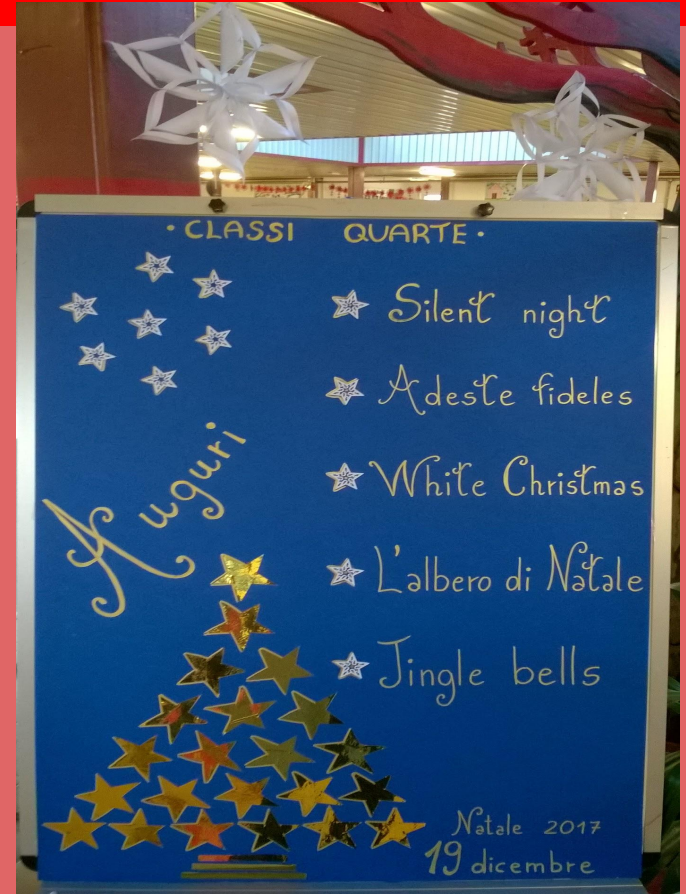 · CLASSI QUARTE ·
Silent night
Adeste fideles
White Christmas
L'albero di Natale
Jingle bells
Auguri
Natale 2017
19 dicembre